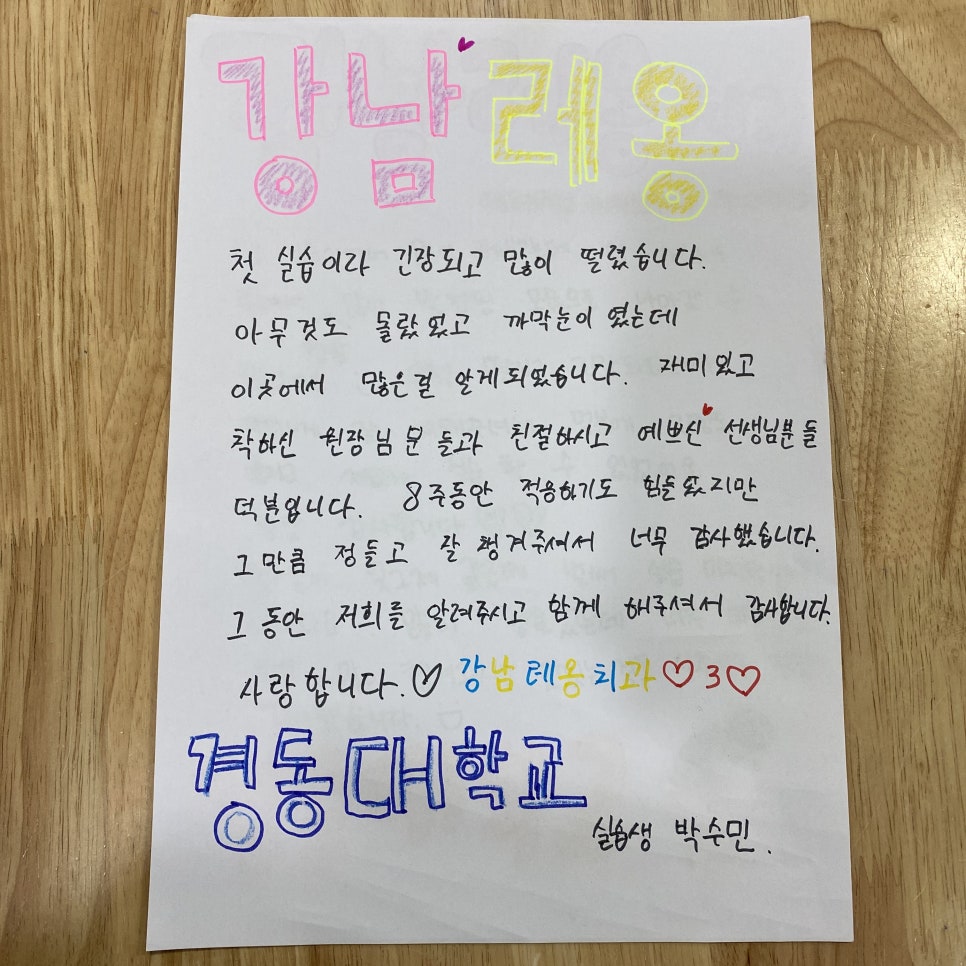 강남레옹
첫 실습이라 긴장되고 많이 떨렸습니다.
아무것도 몰랐었고 까막눈이 였는데
이곳에서 많은걸 알게되었습니다. 재미있고
착하신 원장님 분들과 친절하시고 예쁘신 선생님분들
덕분입니다. 8주동안 적응하기도 힘들었지만
그만큼 정들고 잘 챙겨주셔서 너무 감사했습니다.
그동안 저희를 알려주시고 함께 해주셔서 감사합니다.
사랑합니다.♡ 강남레옹치과♡3♡
경동대학교
실습생 박수민.